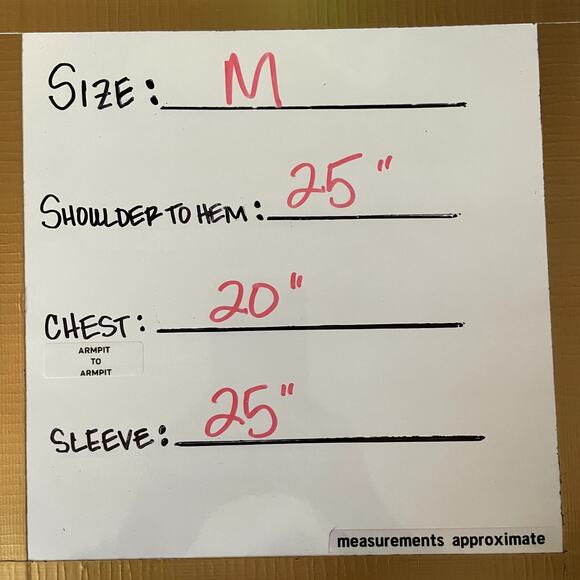 SIZE: M
SHOULDER TO HEM: 25"
CHEST: 20"
ARMPIT
TO
ARMPIT
SLEEVE: 25"
measurements approximate